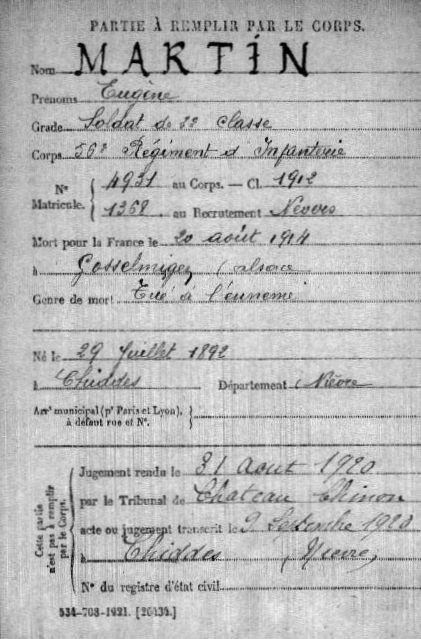 PARTIE À REMPLIR PAR LE CORPS.
Nom MARTIN
Prénoms Eugène
Grade Soldat de 2e classe
Corps 56e Régiment d'Infanterie
N° 4931 au Corps. — Cl. 1912
Matricule. 1368 au Recrutement Nevers
Mort pour la France le 20 août 1914
à Gosselminger (alsace
Genre de mort Tué à l'ennemi
Né le 29 Juillet 1892
à Chiddes Département Nièvre
Arrt municipal (pr Paris et Lyon),
à défaut rue et N°.
Cette partie
n'est pas à remplir
par le Corps.
Jugement rendu le 31 Aout 1920
par le Tribunal de Chateau Chinon
acte ou jugement transcrit le 9 Septembre 1920
à Chiddes (Nievre)
N° du registre d'état civil
534-708-1921. [26434.]